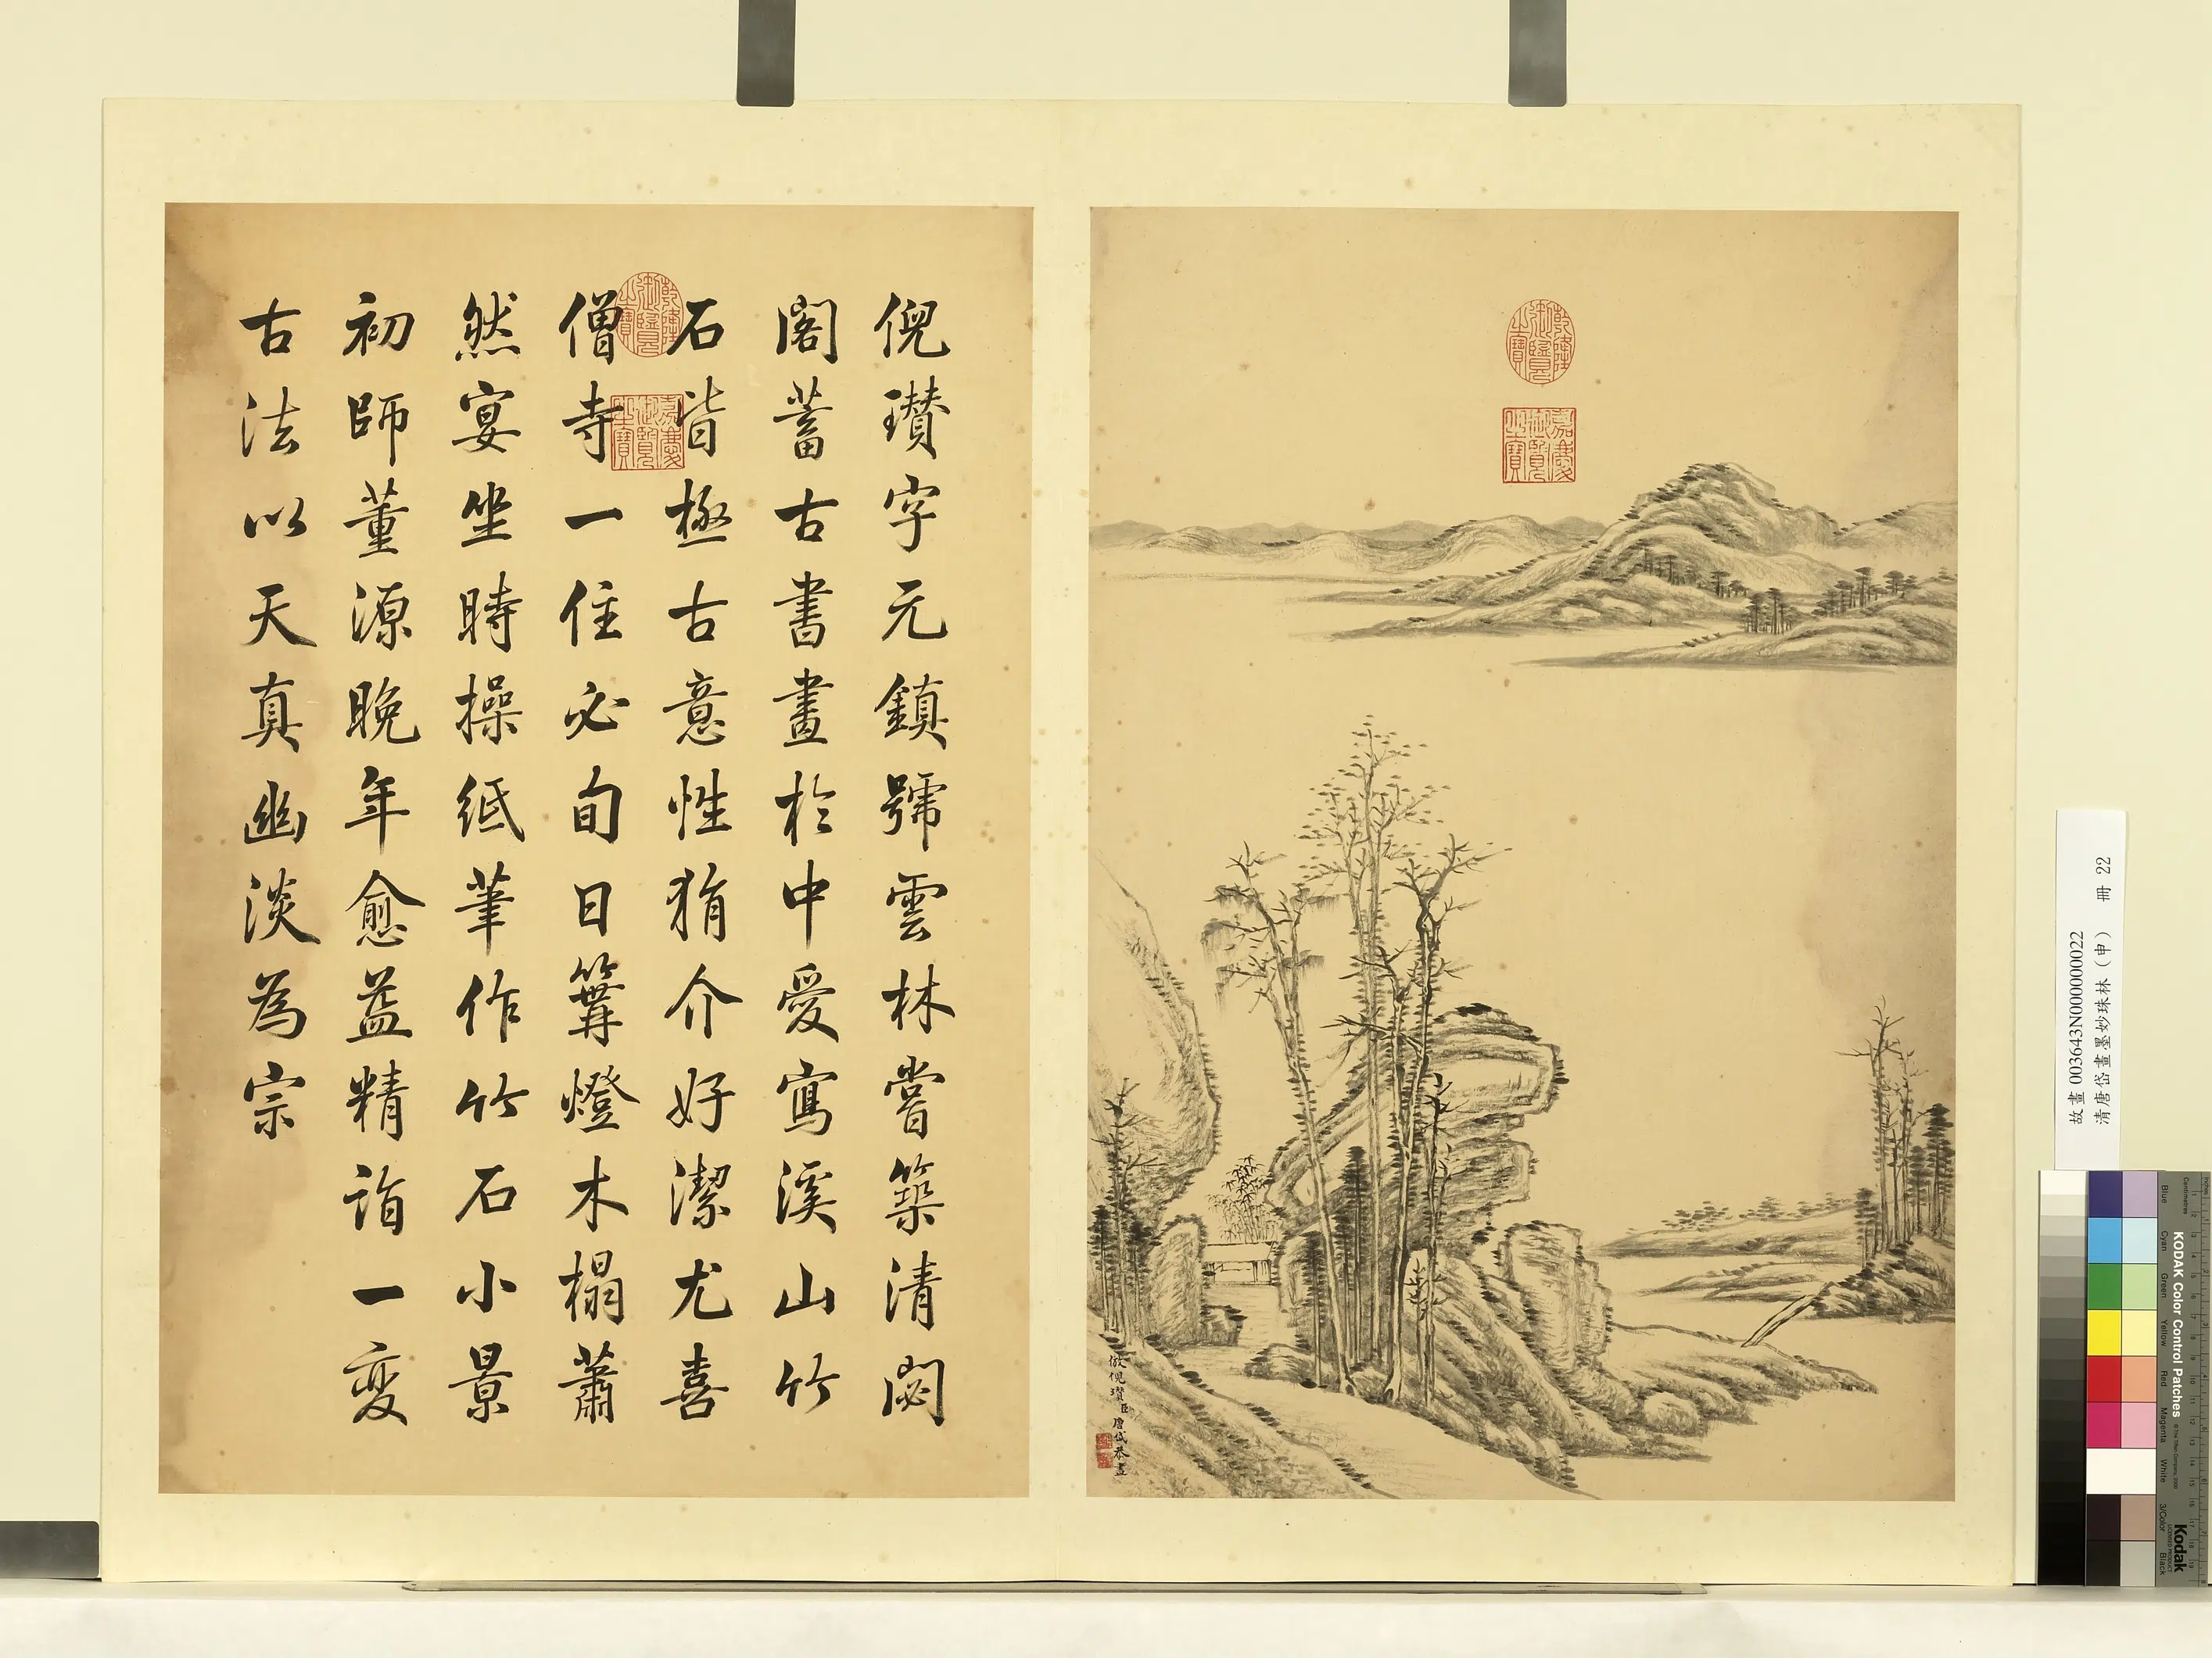 倪瓚字元鎮號雲林嘗築清閟
閣蓄古書畫於中愛寫溪山竹
石皆極古意性狷介好潔尤喜
僧寺一住必旬日篝燈木榻蕭
然宴坐時操紙筆作竹石小景
初師董源晚年愈益精詣一變
古法以天真幽淡為宗
乾隆御覽之寶
嘉慶御覽之寶
乾隆御覽之寶
嘉慶御覽之寶
倣倪瓚 臣唐岱恭畫
故畫 003643N000000022
清唐岱畫墨妙珠林（申） 冊 22
KODAK Color Control Patches
Blue Cyan Green Yellow Red Magenta White 3/Color Black
Kodak
LICENSED PRODUCT
Centimetres
Inches